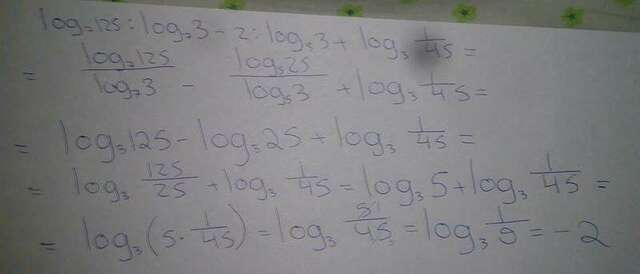 log₂125 : log₂3 - 2 : log₅3 + log₃ 1/45 =
= log₂125/log₂3 - log₅25/log₅3 + log₃ 1/45 =
= log₃125 - log₃25 + log₃ 1/45 =
= log₃ 125/25 + log₃ 1/45 = log₃5 + log₃ 1/45 =
= log₃(5 · 1/45) = log₃ 5/45 = log₃ 1/9 = -2